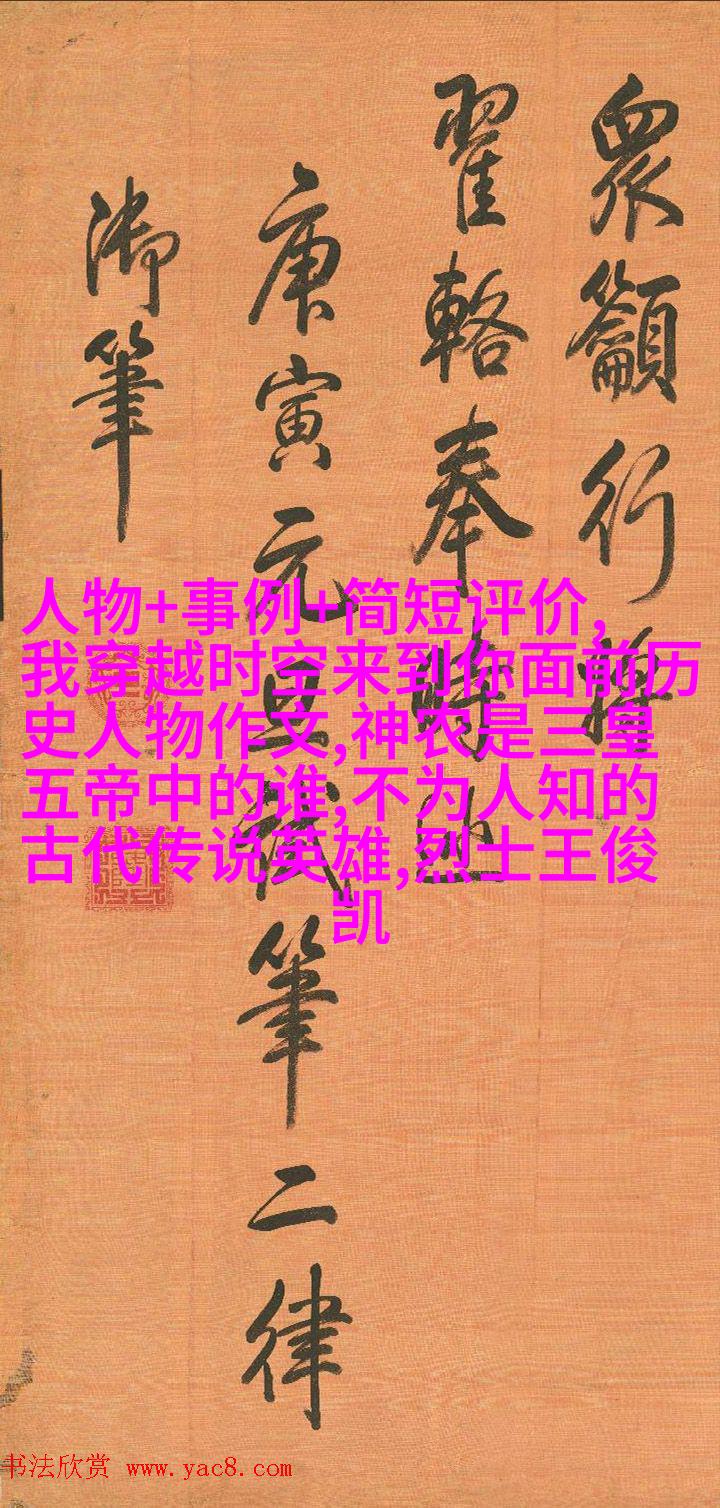 眾籟行
翟輅奉時巡
庚寅元旦試筆二律
御筆
人物+事例+简短评价,
我穿越时空来到你面前历
史人物作文,神农是三皇
五帝中的谁,不为人知的
古代传说英雄,烈士王俊
凯
书法欣赏 www.yac8.com